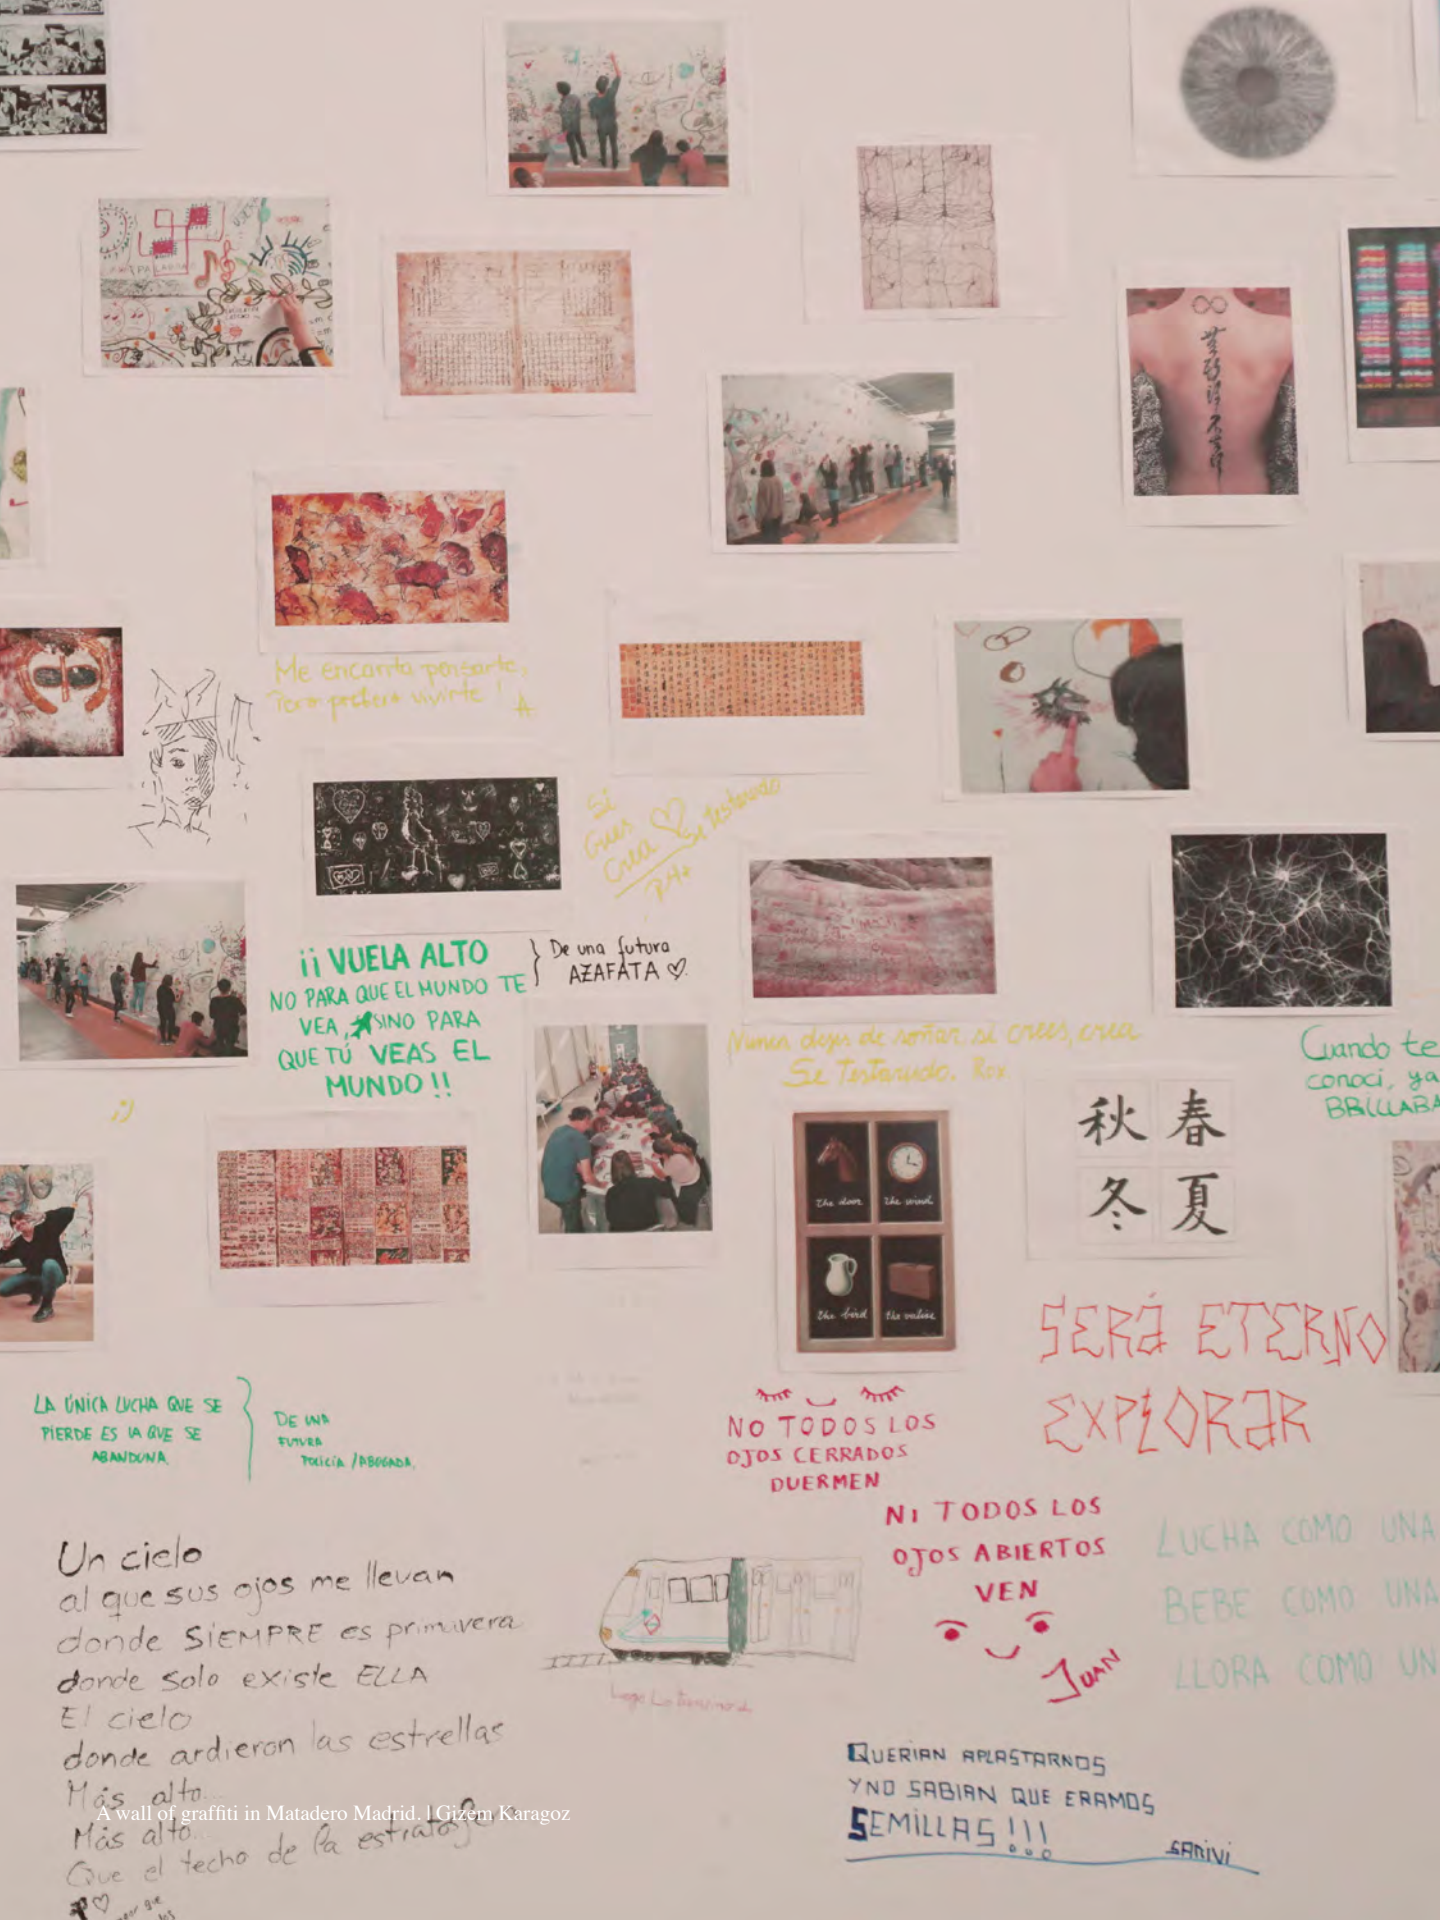 Me encanta pensarte,
Pero prefiero vivirte!
A
Si
Crees
Crea
Se Testarudo
¡¡ VUELA ALTO
NO PARA QUE EL MUNDO TE
VEA, SINO PARA
QUE TÚ VEAS EL
MUNDO !!
De una futura
AZAFATA
Nunca dejes de soñar, si crees, crea
Se Testarudo. Rox
Cuando te
conocí, ya
BRILLABA
:)
秋 春
冬 夏
the door the wind
the bird the valise
SERÁ ETERNO
EXPLORAR
LA ÚNICA LUCHA QUE SE
PIERDE ES LA QUE SE
ABANDONA.
DE UNA
FUTURA
POLICÍA / ABOGADA.
NO TODOS LOS
OJOS CERRADOS
DUERMEN
NI TODOS LOS
OJOS ABIERTOS
VEN
JUAN
LUCHA COMO UNA
BEBE COMO UNA
LLORA COMO UN
Un cielo
al que sus ojos me llevan
donde SIEMPRE es primavera
donde solo existe ELLA
El cielo
donde ardieron las estrellas
Más alto...
Más alto...
Que el techo de la estratosfera
A wall of graffiti in Matadero Madrid. | Gizem Karagoz
QUERIAN APLASTARNOS
Y NO SABIAN QUE ERAMOS
SEMILLAS !!!
SARIVI